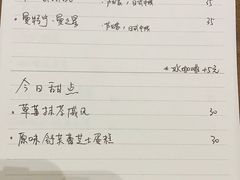 35
·曼特宁·曼之星 35
*冰咖啡+5元
今日甜点
·草莓抹茶戚风 30
·原味舒芙蕾芝士蛋糕 30